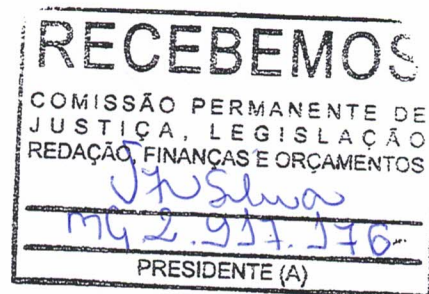 RECEBEMOS
COMISSÃO PERMANENTE DE
JUSTIÇA, LEGISLAÇÃO
REDAÇÃO, FINANÇAS E ORÇAMENTOS
Silva
MG 2.917.176
PRESIDENTE (A)